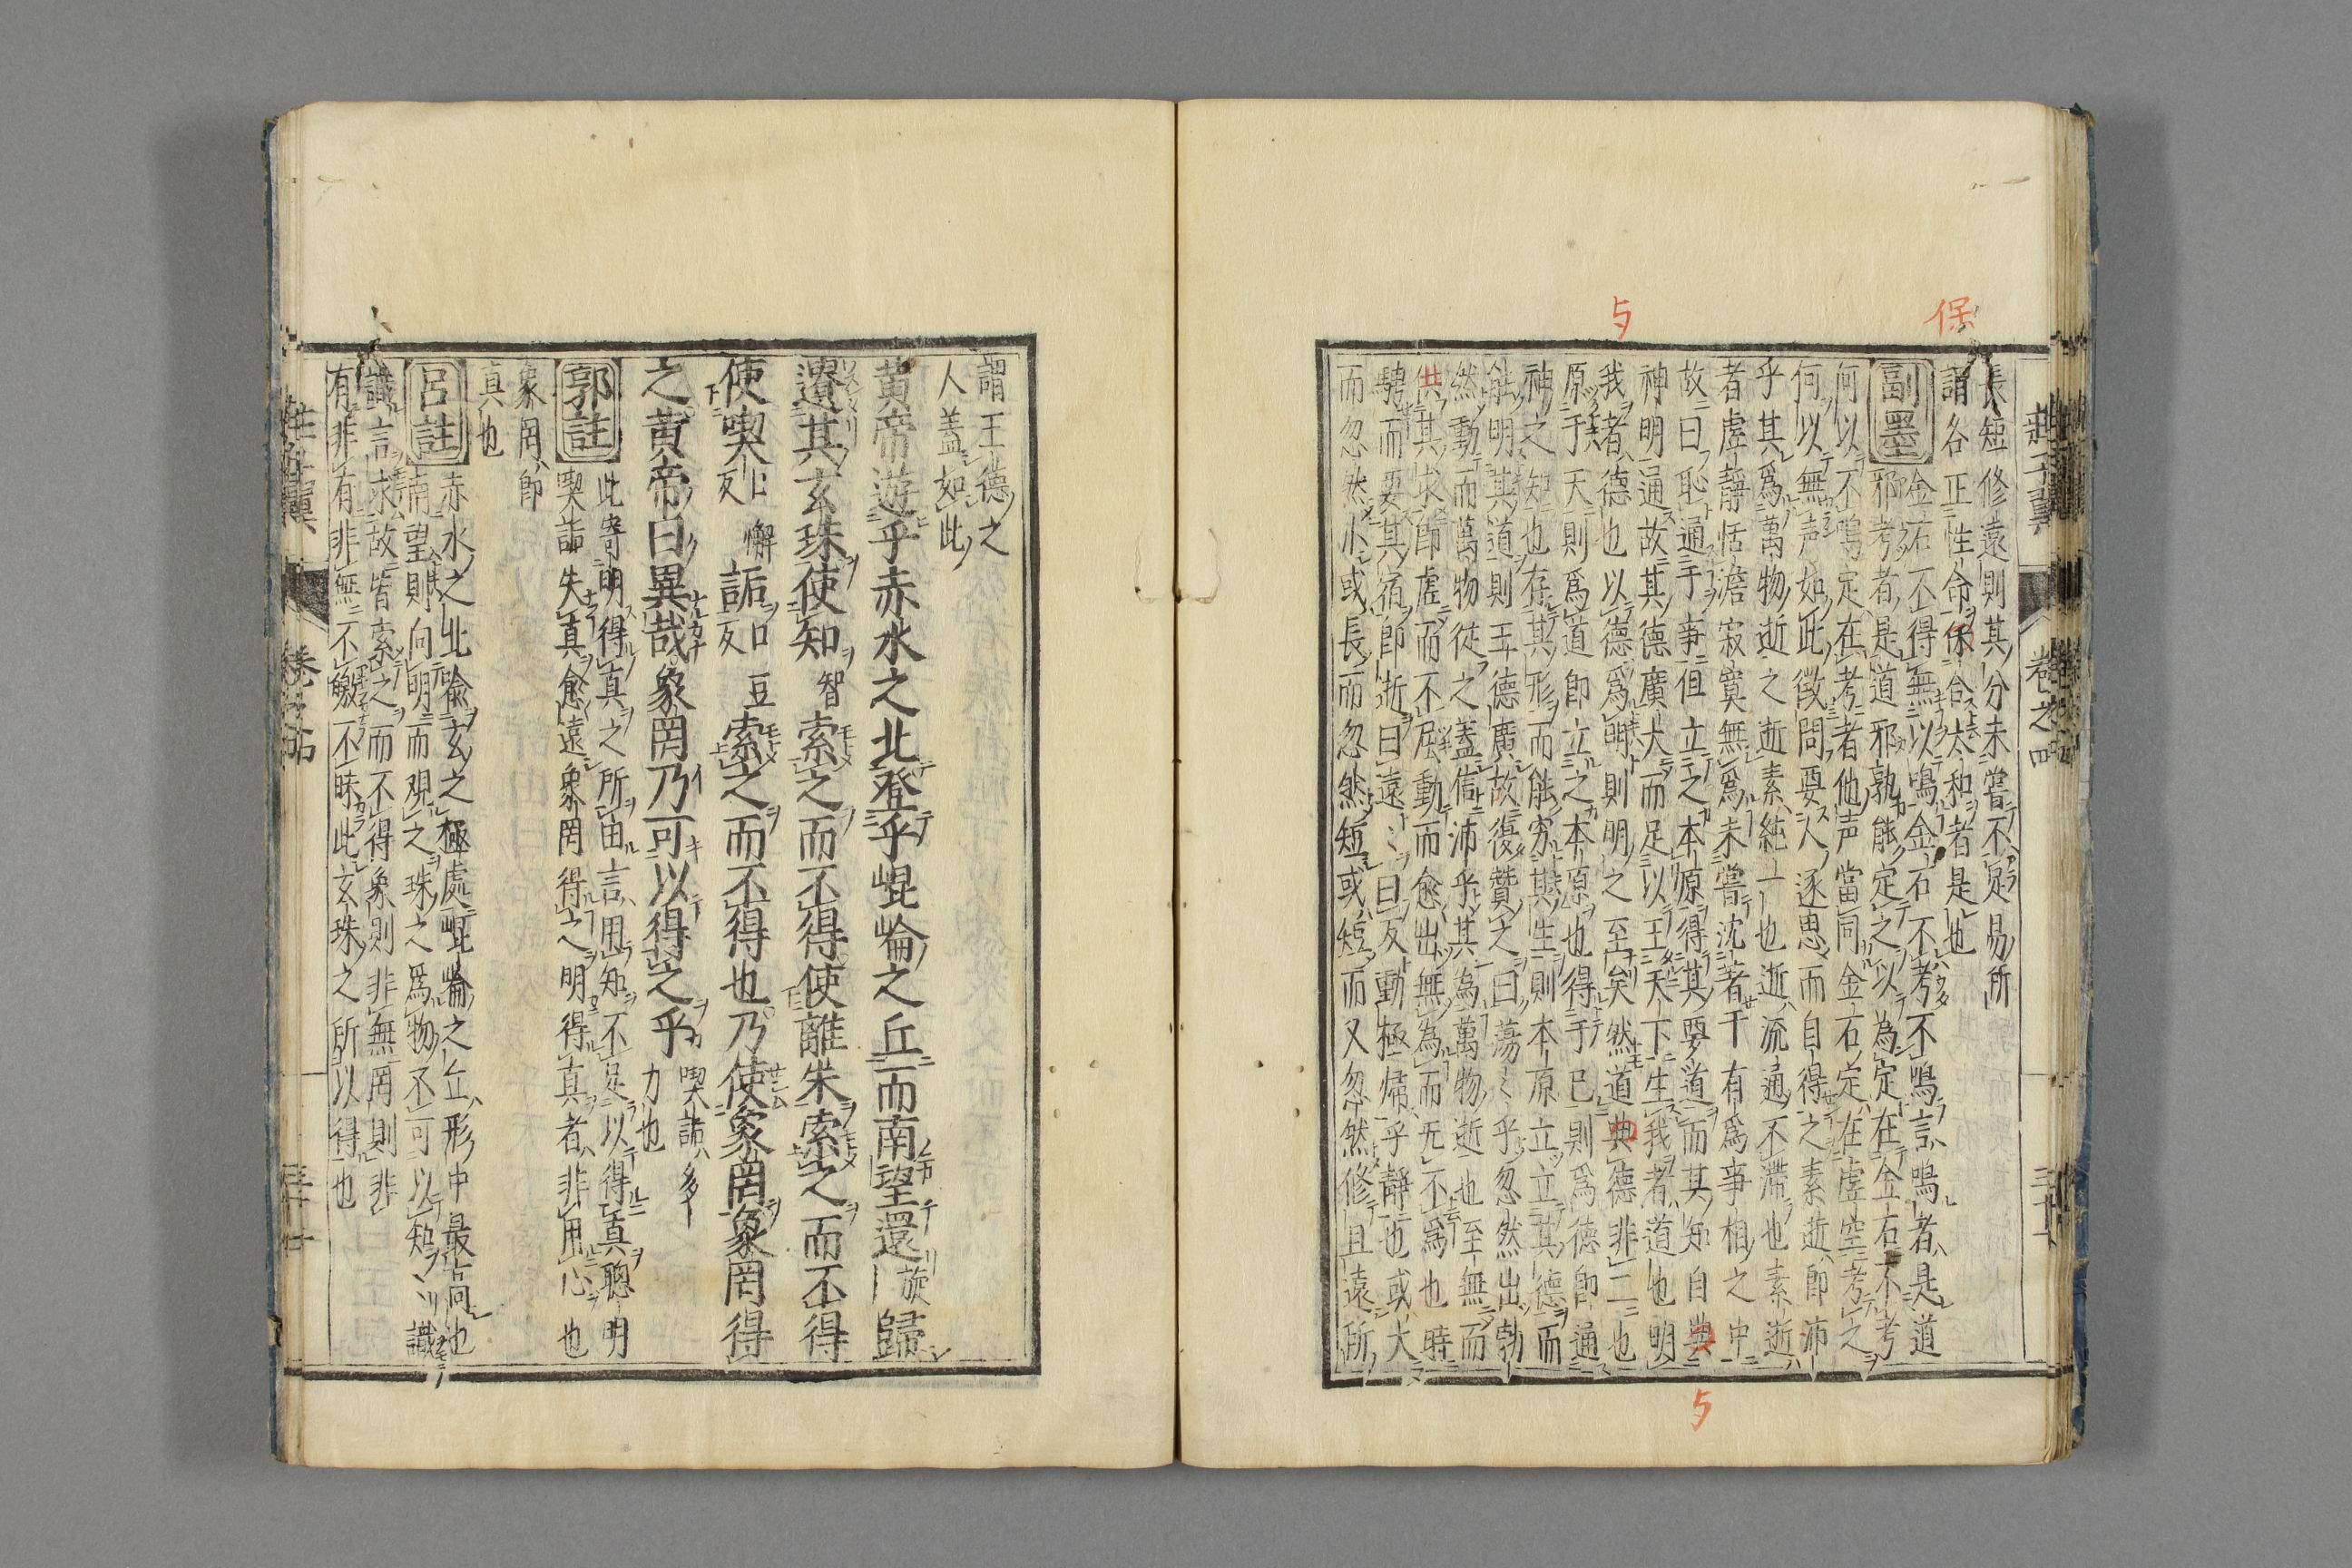 保
与
長短修遠則其分未嘗不定易所
謂各正性命保合太和者是也
副墨
金石不得無以鳴金石不考不鳴言鳴者是道
邪考者是道邪孰能定之以為定在金石不考
何以不鳴定在考者他声當同金石定在虛空考之
何以無声如此徴問要人逐思而自得之素逝即沛
乎其爲萬物逝之逝素純一也逝流通不滯也素逝
者虛靜恬澹寂寞無爲未嘗沈著于有爲事相之中
故曰恥通于事但立之本原得其要道而其知自與
神明通故其德廣大而足以王天下生我者道也明
我者德也以德爲明則明之至矣然道典德非二也
原于天則爲道即立之本原也得于已則爲德即通
神之知也存其形而能穷其生則本原立立其德而
能明其道則王德廣故復贊之曰蕩〻乎忽然出勃
然動而萬物從之蓋信沛乎其為萬物逝也至無而
供其求即虛而不屈動而愈出無為而无不爲也時
騁而要其宿即逝曰遠〻曰反動極帰乎静也或大
而忽然小或長而忽然短或短而又忽然修且遠所
与
謂王德之
人蓋如此
黄帝遊乎赤水之北登乎崐崙之丘而南望還旋歸
遺其玄珠使知智索之而不得使離朱索之而不得
使喫口懈反詬口豆反索之而不得也乃使象罔象罔得
之黄帝曰異哉象罔乃可以得之乎喫詬多力也
郭註
此寄明得真之所由言用知不足以得真聰明
喫詬失真愈遠象罔得之明得真者非用心也
象罔即
真也
呂註
赤水之北喻玄之極處崐崙之丘形中最高也
南望則向明而观之珠之爲物不可以知〻識
識言求故皆索之而不得象則非無罔則非
有非有非無不皦不昧此玄珠之所以得也